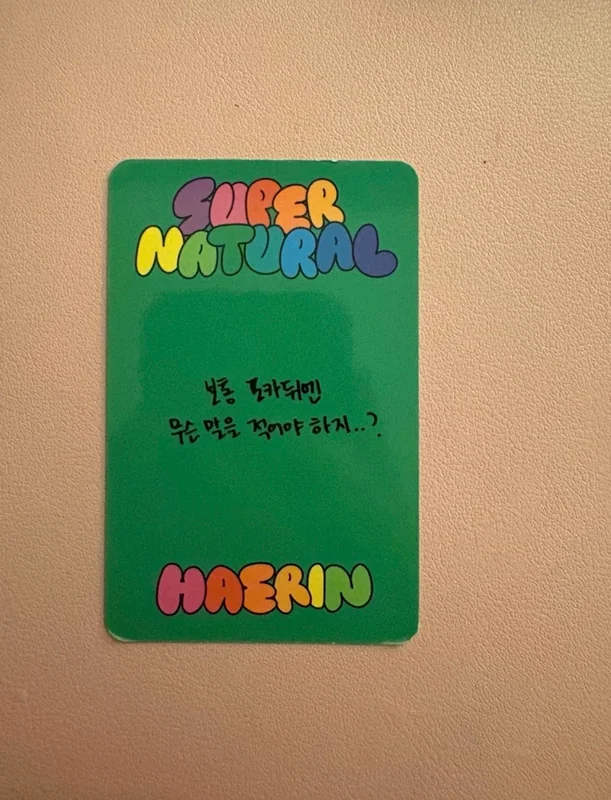 SUPER
NATURAL
보통 포카뒤엔
무슨 말을 적어야 하지..?
HAERIN